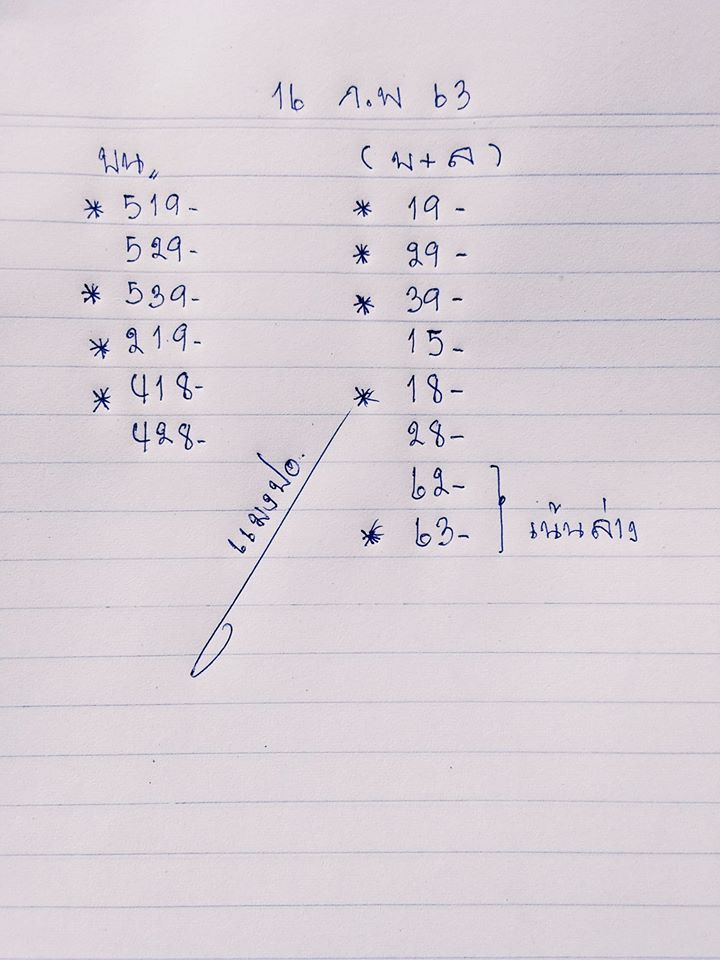 16 ก.พ 63
บน,,
* 519-
529-
* 539-
* 219-
* 418-
428-
(บ+ล)
* 19-
* 29-
* 39-
15-
* 18-
28-
62-
* 63-
เน้นล่าง
แมงปอ.